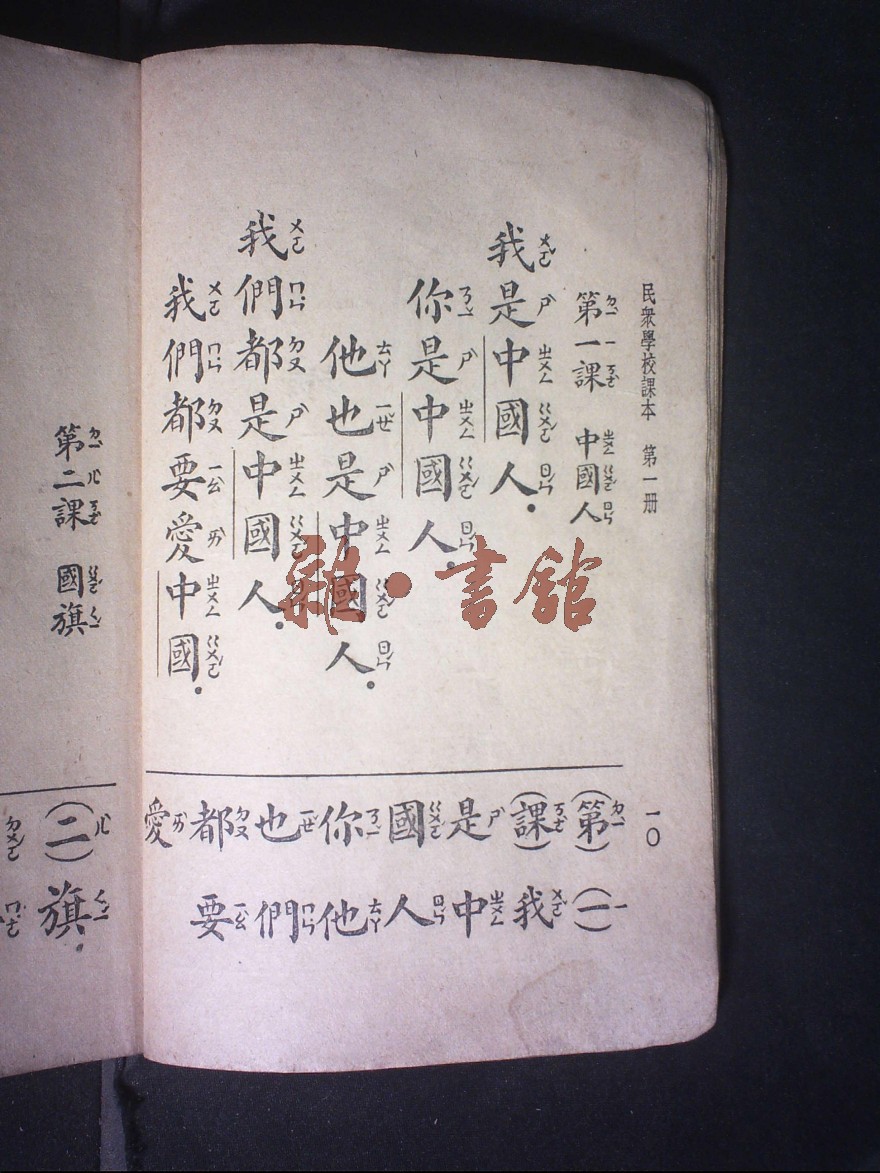 民衆學校課本　第一册
一〇
第一課　中國人
我是中國人．
你是中國人．
他也是中國人．
我們都是中國人．
我們都要愛中國．
(第)(一)
(課)我
是中
國人
你他
也們
都要
愛
第二課　國旗
(二)旗
雜·書館